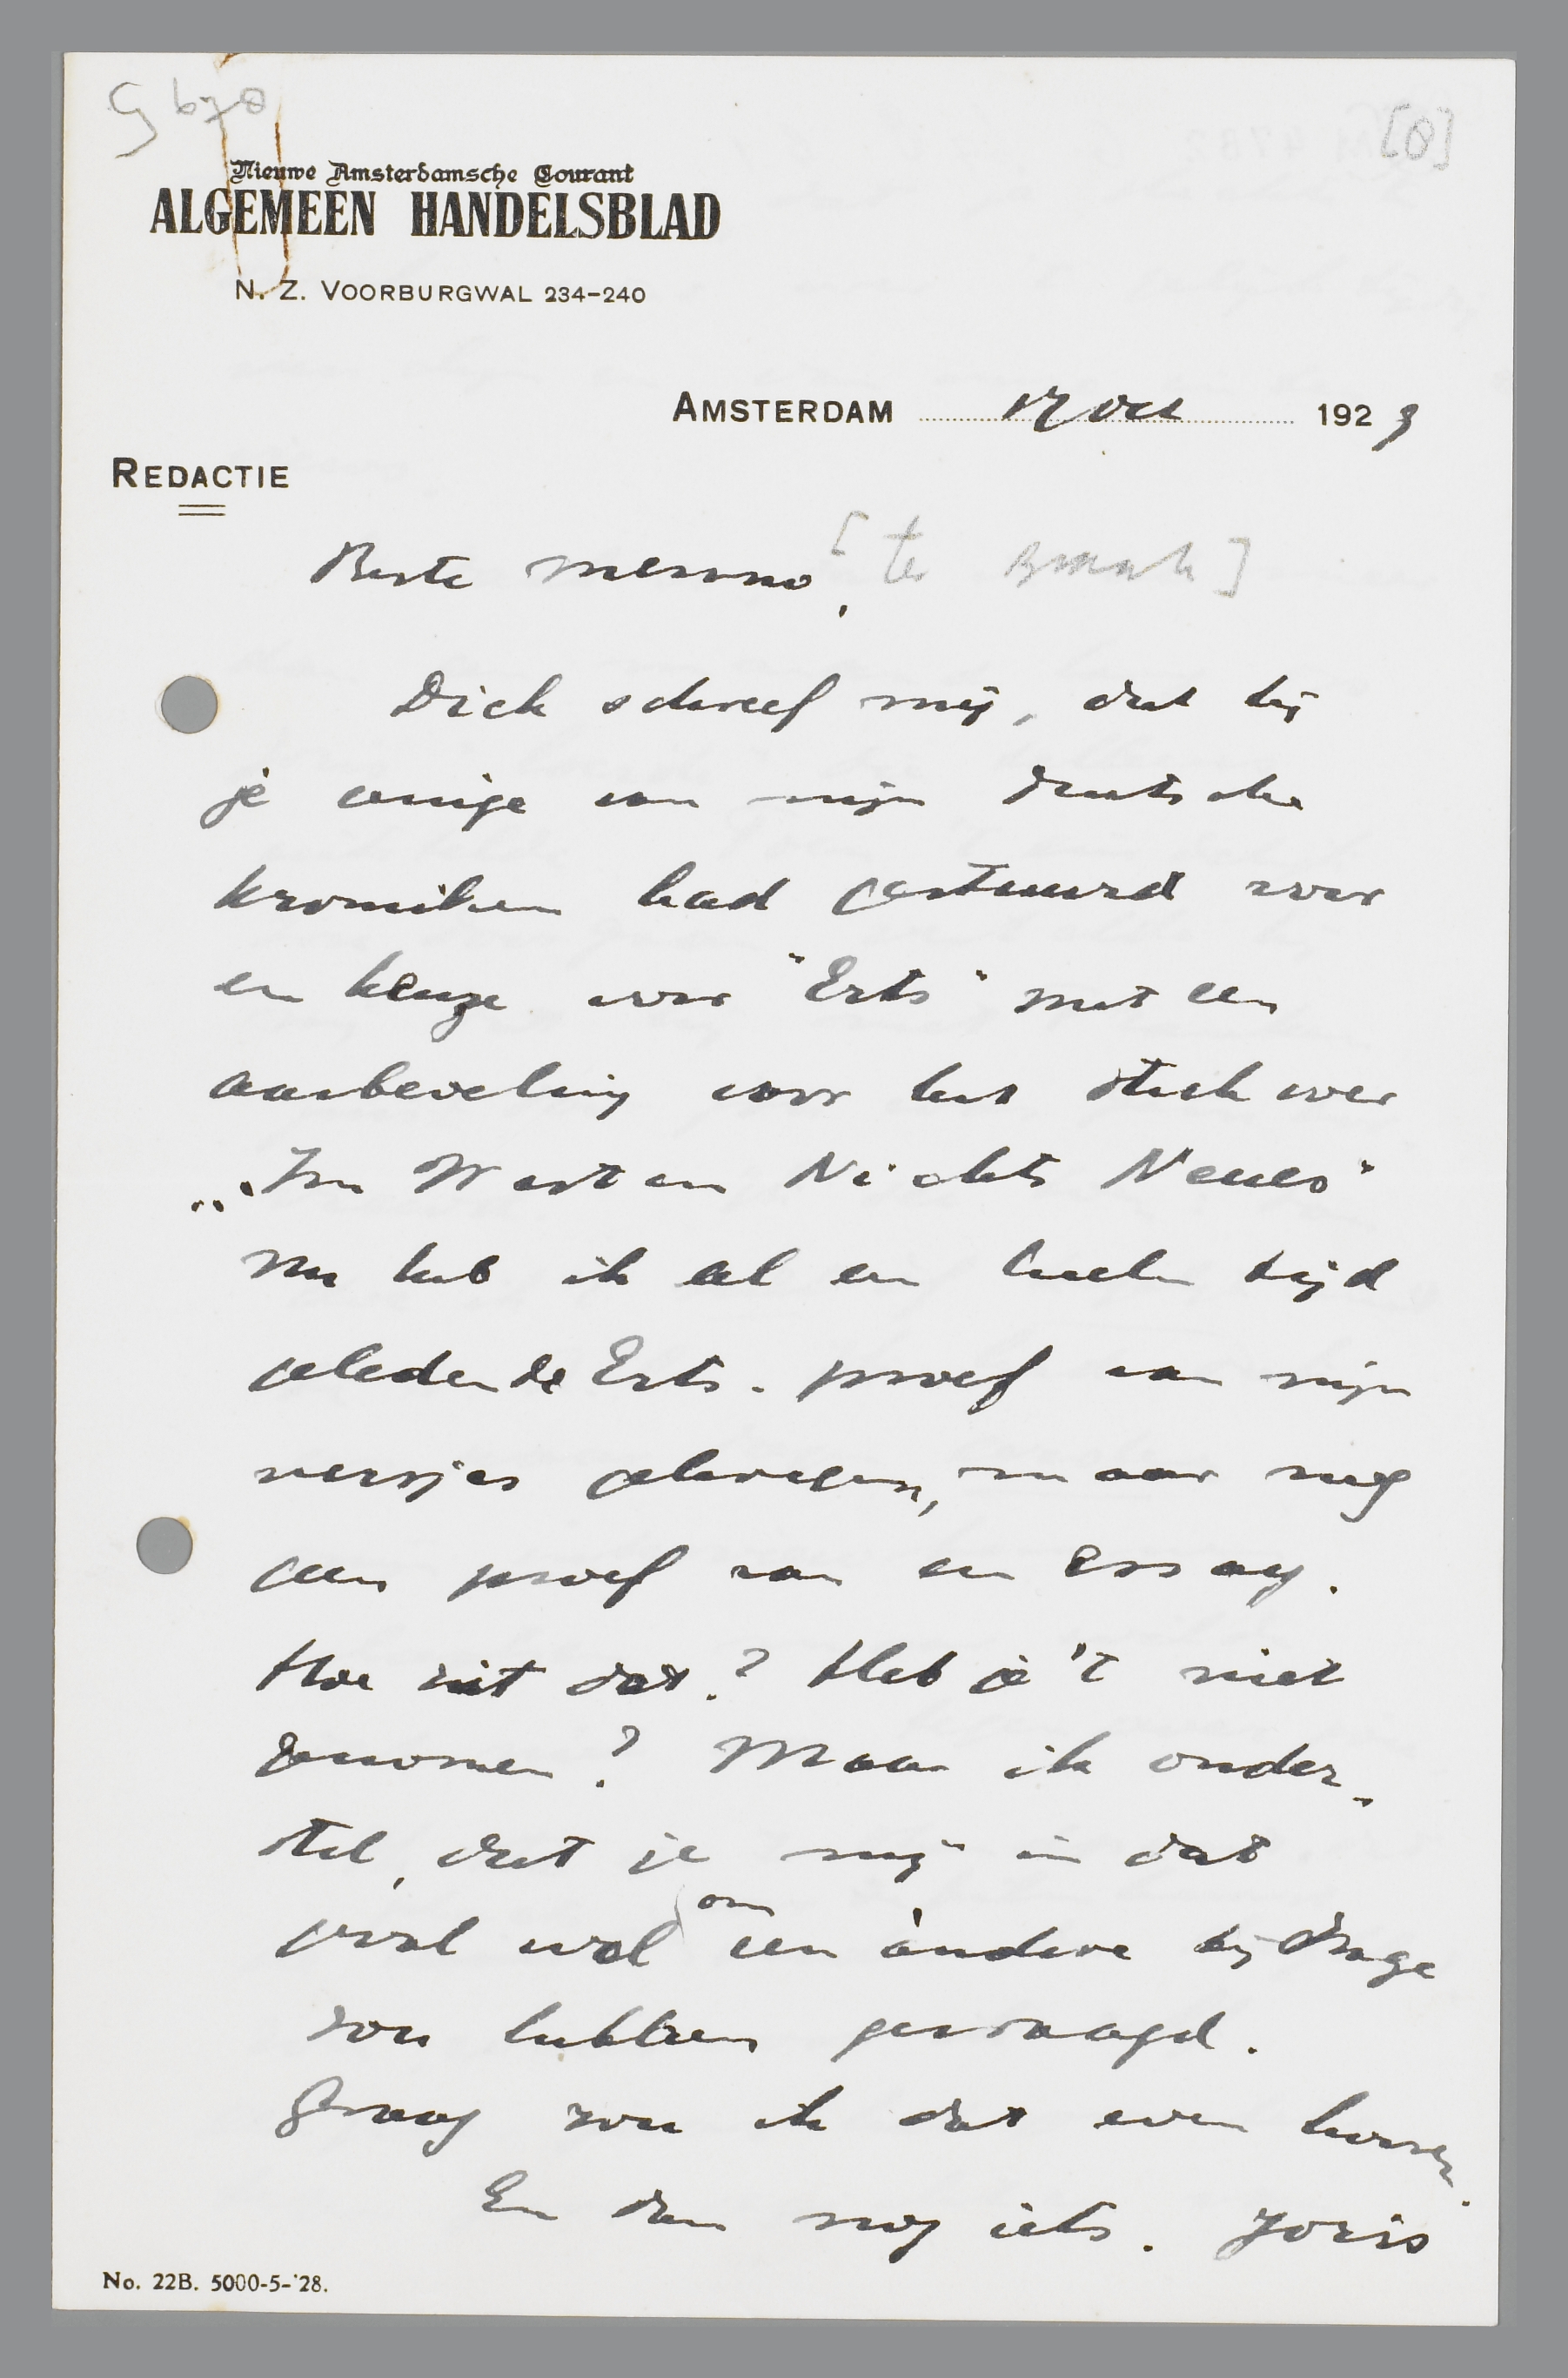 G 670
[0]
Nieuwe Amsterdamsche Courant
ALGEMEEN HANDELSBLAD
N. Z. VOORBURGWAL 234-240
AMSTERDAM 17 Oct 1929
REDACTIE
Beste Menno, [ter Braak]
Dick schreef mij, dat hij
je eenige van mijn duitsche
kronieken had gestuurd voor
een keuze voor "Erts" met een
aanbeveling voor het stuk over
„Im Westen Nichts Neues"
Nu heb ik al een heelen tijd
geleden de Erts-proef van mijn
versjes gekregen, maar nog
geen proef van een essay.
Hoe zit dat? Heb je 't niet
genomen? Maar ik onder-
stel, dat je mij in dat
geval wel om een àndere bijdrage
zou hebben gevraagd.
Graag zou ik dat even hooren.
En dan nog iets. Joris
No. 22B. 5000-5-'28.